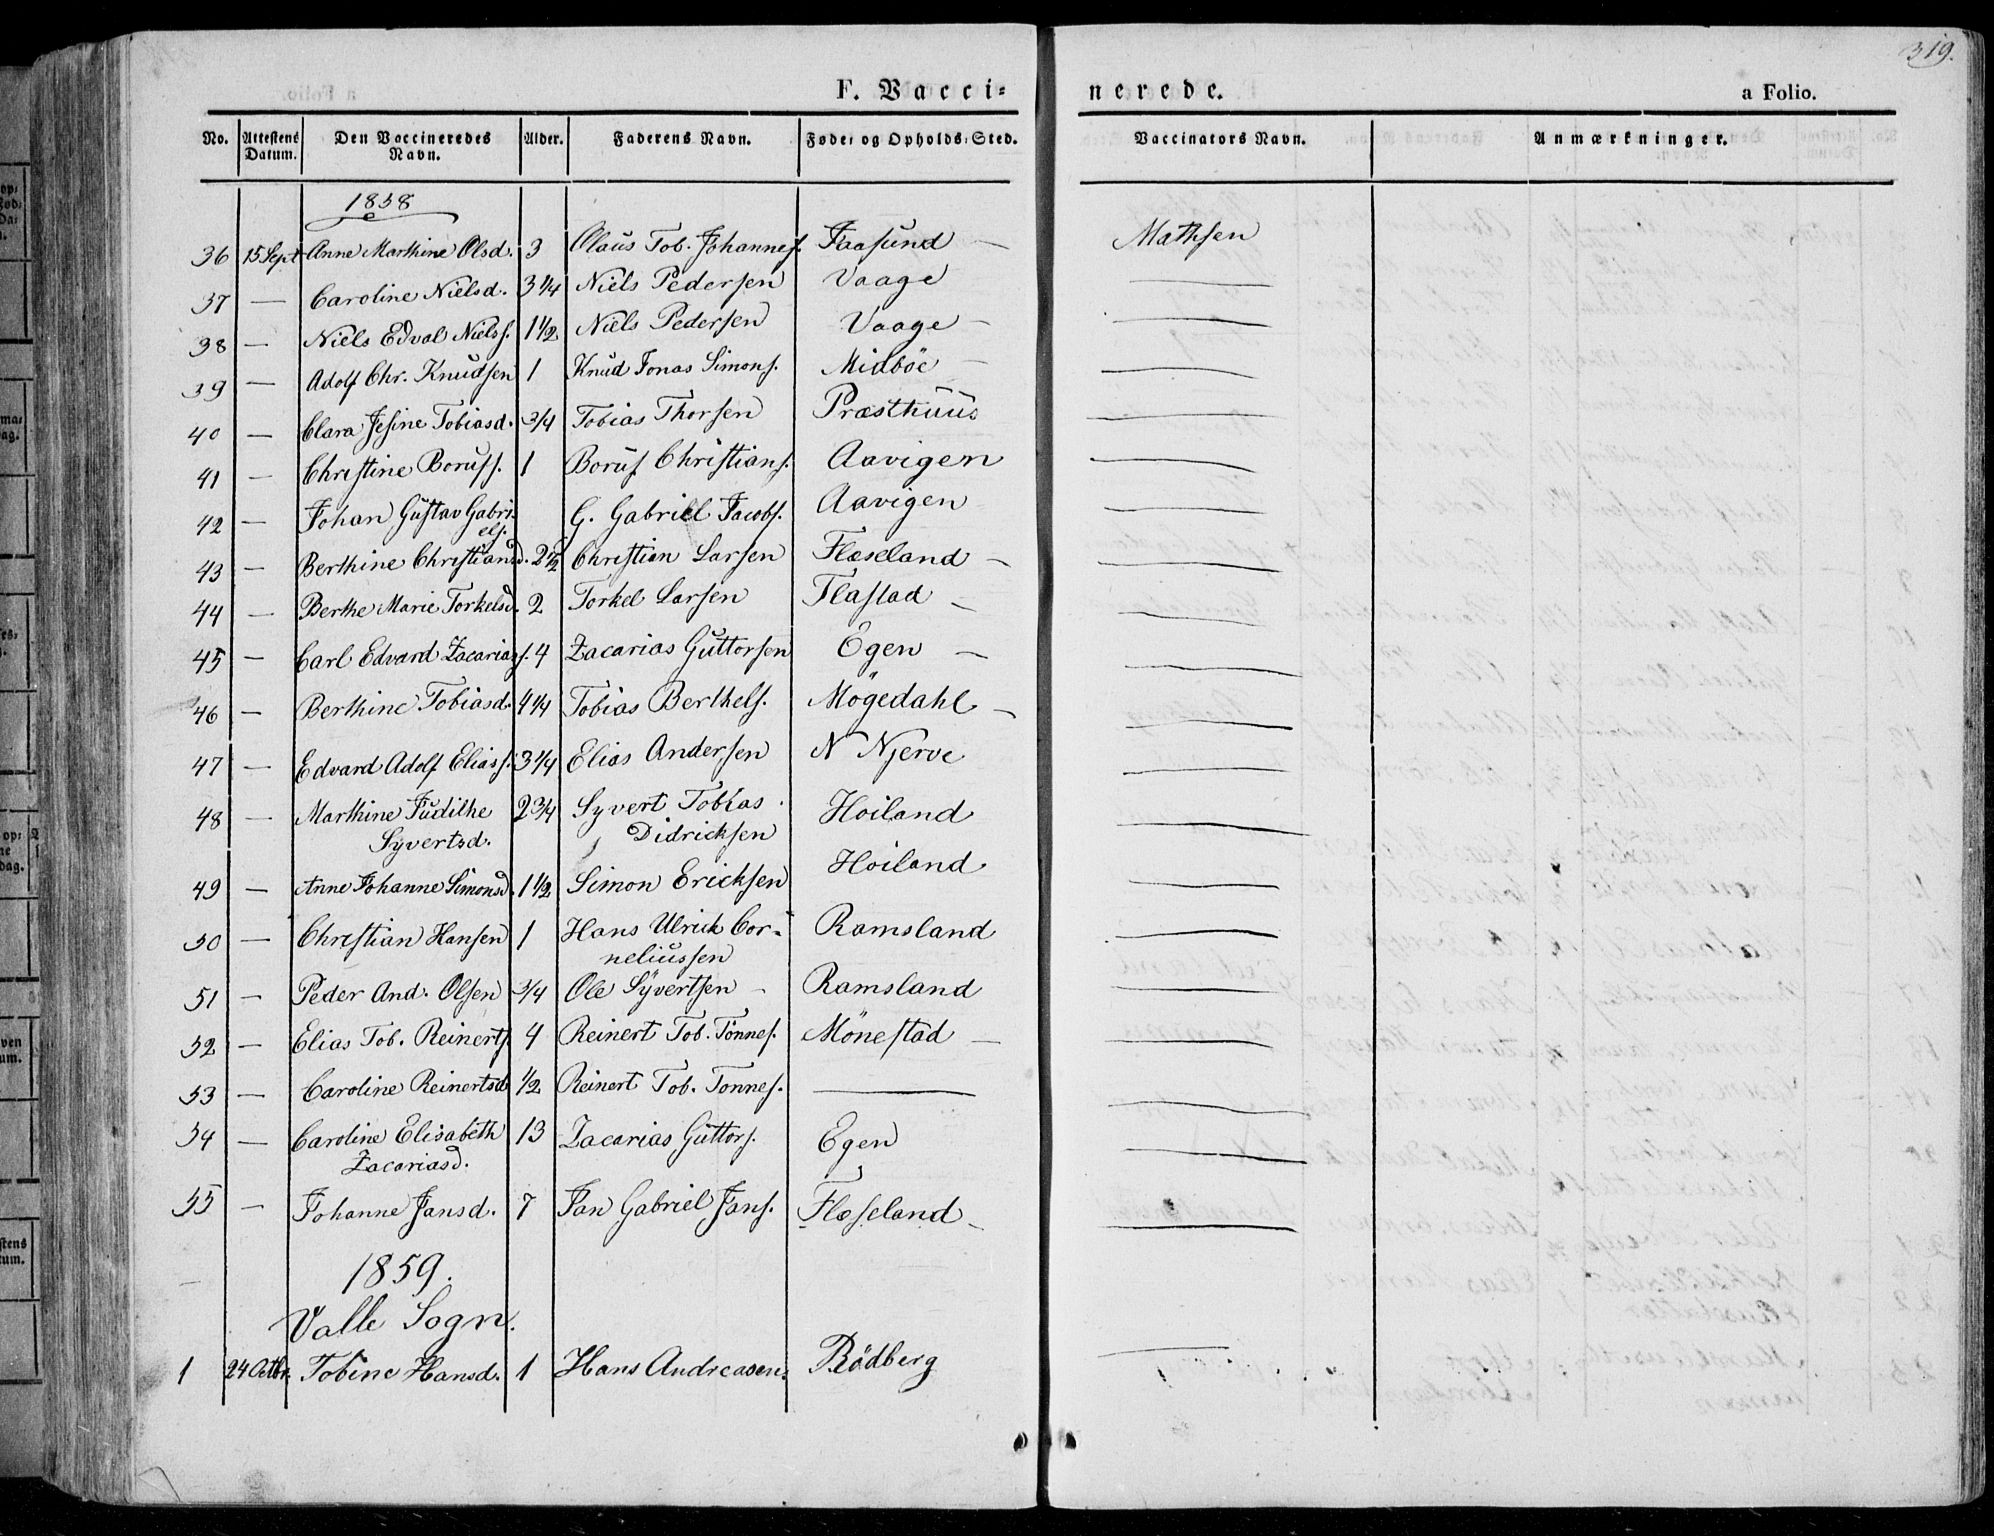 319.
F. Vaccinerede. a Folio.
No. Attestens Datum. Den Vaccineredes Navn. Alder. Faderens Navn. Føde- og Opholds-Sted. Vaccinators Navn. Anmærkninger.
1858
36 15 Sept Anne Marthine Olsd. 3 Olaus Tob. Johannes. Faasund — Mathsen
37 — Caroline Nielsd. 3 1/4 Niels Pedersen Vaage —
38 — Niels Edval Nielss. 1 1/2 Niels Pedersen Vaage — —
39 — Adolf Chr. Knudsen 1 Knud Jonas Simons. Midböe — —
40 — Clara Jesine Tobiasd. 3/4 Tobias Thorsen Præsthuus —
41 — Christine Boruss. 1 Borus Christians. Aavigen —
42 — Johan Gustav Gabri-
els. G. Gabriel Jacobs. Aavigen —
43 — Berthine Christiansd. 2 1/2 Christian Larsen Fleseland — —
44 — Berthe Marie Torkelsd. 2 Torkel Larsen Flastad — —
45 — Carl Edvard Zacarias. 4 Zacarias Guttorsen Egen — —
46 — Berthine Tobiasd. 4 1/4 Tobias Berthels. Mögedahl — —
47 — Edvard Adolf Eliass. 3 1/4 Elias Andersen N Njerve —
48 — Marthine Judithe 2 3/4 Syvert Tobias Hoiland —
Syvertsd. Didricksen
49 — Anne Johanne Simonsd. 1 1/2 Simon Ericksen Hoiland —
50 — Christian Hansen 1 Hans Ulrick Cor- Ramsland —
neliussen
51 — Peder And. Olsen 3/4 Ole Syvertsen — Ramsland —
52 — Elias Tob. Reinerts. 4 Reinert Tob. Tönnes. Mönestad — —
53 — Caroline Reinertsd. 1/2 Reinert Tob. Tonnes. — —
54 — Caroline Elisabeth 13 Zacarias Guttors. Egen —
Zacariasd.
55 — Johanne Jansd. 7 Jan Gabriel Jans. Fleseland — —
1859.
Valle Sogn.
1 24 Octbr. Tobine Hansd. 1 Hans Andreasen. Rödberg —